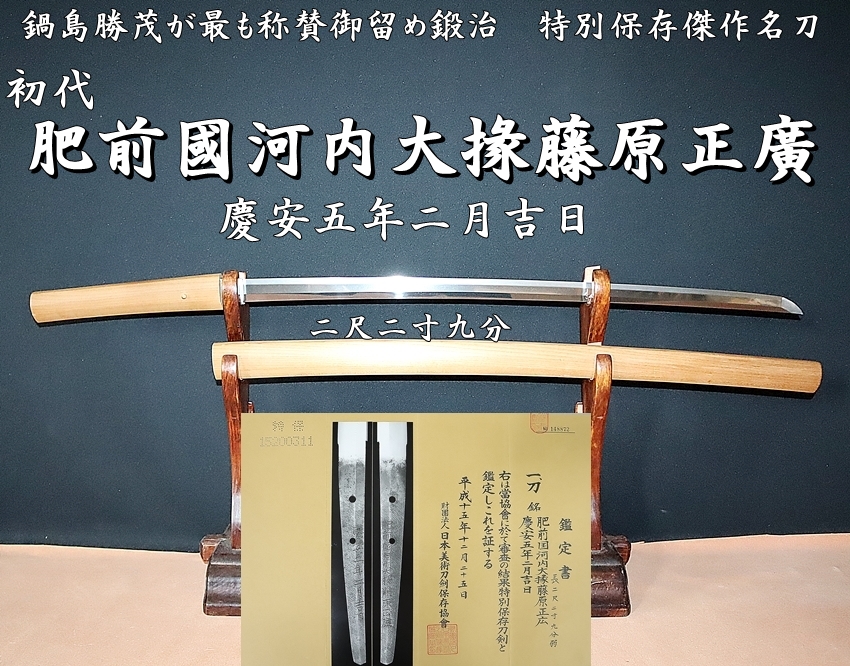 鍋島勝茂が最も称賛御留め鍛治　特別保存傑作名刀
初代
肥前國河内大掾藤原正廣
慶安五年二月吉日
二尺二寸九分
15200311
№148872
鑑定書
一、刀 銘 肥前国河内大掾藤原正広
慶安五年二月吉日
長 二尺二寸九分弱
右は當協會に於て審査の結果特別保存刀剣と
鑑定しこれを証する
平成十五年十二月二十五日
財團法人 日本美術刀剣保存協會